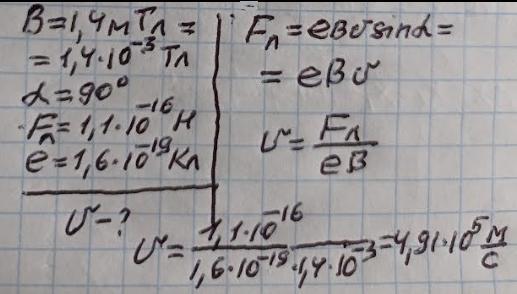 B=1,4мТл=
=1,4·10⁻³Тл
α=90°
Fл=1,1·10⁻¹⁶Н
e=1,6·10⁻¹⁹Кл
υ-?
Fл=eBυsinα=
=eBυ
υ=Fл/eB
υ=1,1·10⁻¹⁶/1,6·10⁻¹⁹·1,4·10⁻³=4,91·10⁵м/с